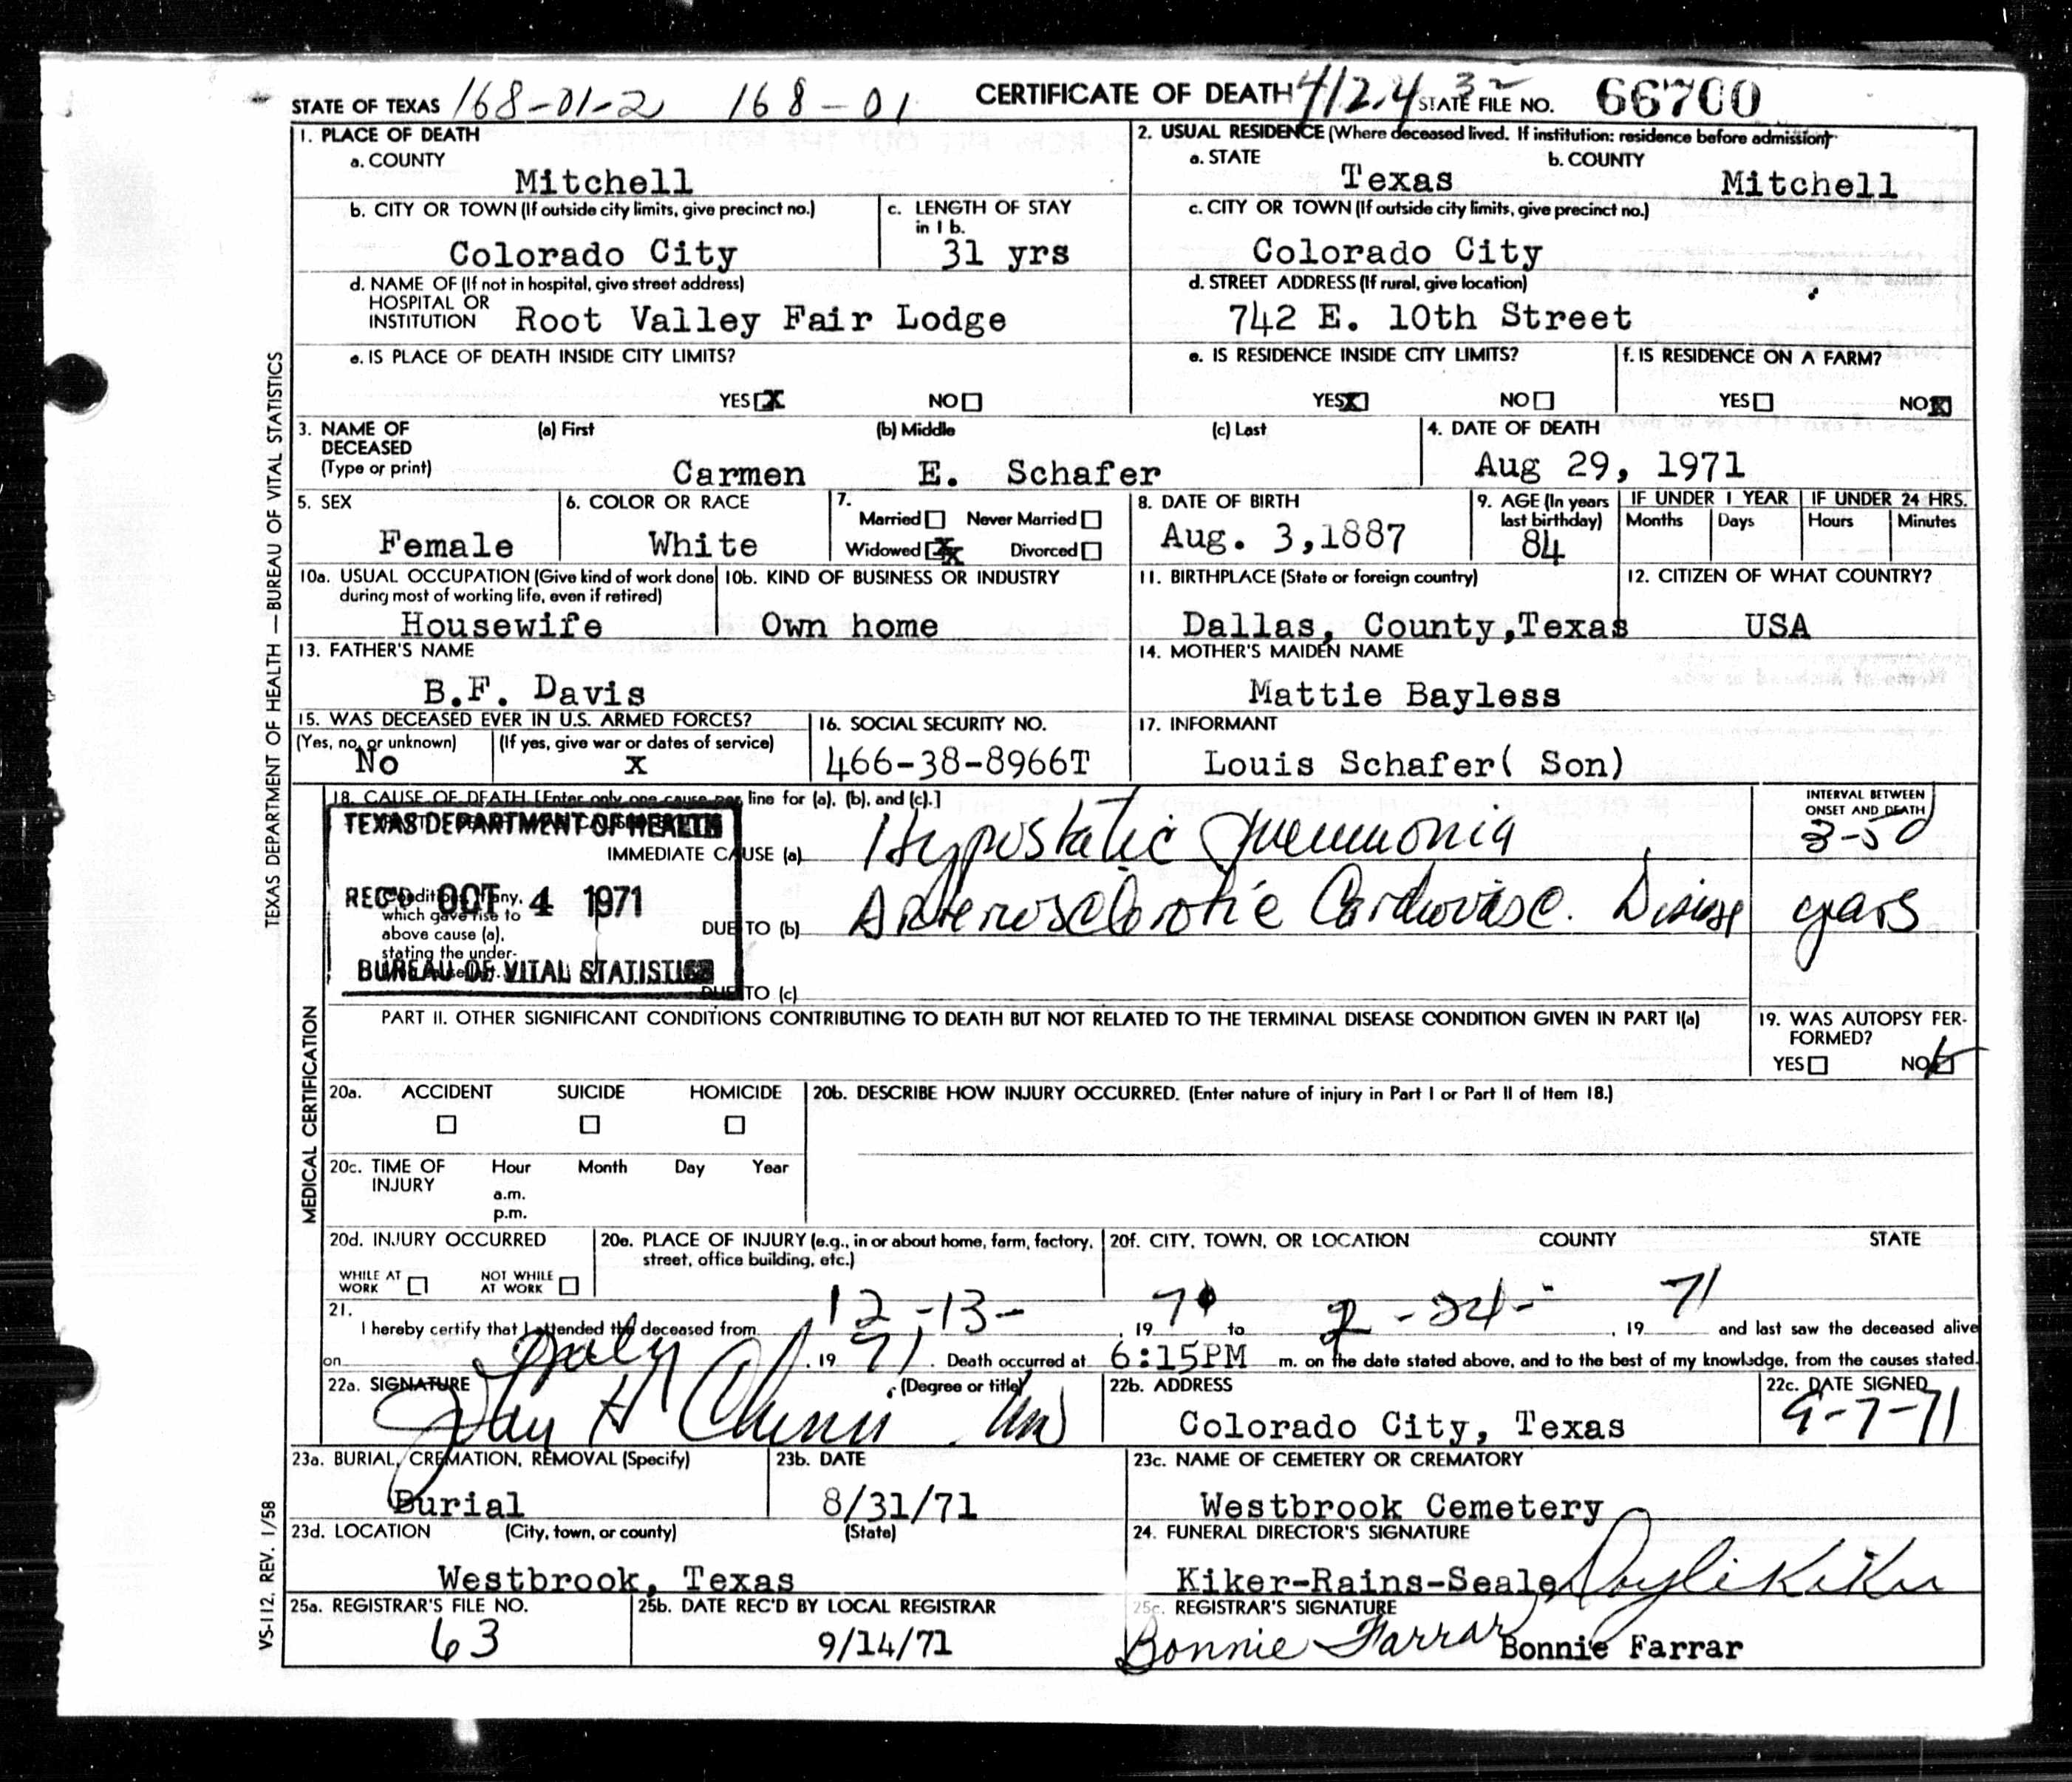 STATE OF TEXAS 168-01-2 168-01 CERTIFICATE OF DEATH 412.4 32 STATE FILE NO. 66700
1. PLACE OF DEATH
a. COUNTY
Mitchell
2. USUAL RESIDENCE (Where deceased lived. If institution: residence before admission)
a. STATE
Texas
b. COUNTY
Mitchell
b. CITY OR TOWN (If outside city limits, give precinct no.)
Colorado City
c. LENGTH OF STAY
in 1 b.
31 yrs
c. CITY OR TOWN (If outside city limits, give precinct no.)
Colorado City
d. NAME OF (If not in hospital, give street address)
HOSPITAL OR
INSTITUTION Root Valley Fair Lodge
d. STREET ADDRESS (If rural, give location)
742 E. 10th Street
e. IS PLACE OF DEATH INSIDE CITY LIMITS?
YES X NO
e. IS RESIDENCE INSIDE CITY LIMITS?
YES X NO
f. IS RESIDENCE ON A FARM?
YES NO X
3. NAME OF
DECEASED
(Type or print)
(a) First (b) Middle (c) Last
Carmen E. Schafer
4. DATE OF DEATH
Aug 29, 1971
5. SEX
Female
6. COLOR OR RACE
White
7.
Married Never Married
Widowed X Divorced
8. DATE OF BIRTH
Aug. 3,1887
9. AGE (In years
last birthday)
84
IF UNDER 1 YEAR
Months Days
IF UNDER 24 HRS.
Hours Minutes
10a. USUAL OCCUPATION (Give kind of work done
during most of working life, even if retired)
Housewife
10b. KIND OF BUSINESS OR INDUSTRY
Own home
11. BIRTHPLACE (State or foreign country)
Dallas, County,Texas
12. CITIZEN OF WHAT COUNTRY?
USA
13. FATHER'S NAME
B.F. Davis
14. MOTHER'S MAIDEN NAME
Mattie Bayless
15. WAS DECEASED EVER IN U.S. ARMED FORCES?
(Yes, no, or unknown)
No
(If yes, give war or dates of service)
x
16. SOCIAL SECURITY NO.
466-38-8966T
17. INFORMANT
Louis Schafer( Son)
18. CAUSE OF DEATH [Enter only one cause per line for (a), (b), and (c).]
TEXAS DEPARTMENT OF HEALTH
REC'D OCT 4 1971
BUREAU OF VITAL STATISTICS
IMMEDIATE CAUSE (a) Hypostatic Pneumonia
Conditions, if any,
which gave rise to
above cause (a),
stating the under-
DUE TO (b) Arteriosclerotic Cardiovasc. Disease
DUE TO (c)
INTERVAL BETWEEN
ONSET AND DEATH
3-5d
years
PART II. OTHER SIGNIFICANT CONDITIONS CONTRIBUTING TO DEATH BUT NOT RELATED TO THE TERMINAL DISEASE CONDITION GIVEN IN PART I(a)
19. WAS AUTOPSY PER-
FORMED?
YES NO
20a. ACCIDENT SUICIDE HOMICIDE
20b. DESCRIBE HOW INJURY OCCURRED. (Enter nature of injury in Part I or Part II of Item 18.)
20c. TIME OF
INJURY
Hour Month Day Year
a.m.
p.m.
20d. INJURY OCCURRED
WHILE AT
WORK
NOT WHILE
AT WORK
20e. PLACE OF INJURY (e.g., in or about home, farm, factory,
street, office building, etc.)
20f. CITY, TOWN, OR LOCATION COUNTY STATE
21.
I hereby certify that I attended the deceased from 12-13- , 19 70 to -24- , 19 71 and last saw the deceased alive
on July , 19 71 . Death occurred at 6:15PM m. on the date stated above, and to the best of my knowledge, from the causes stated.
22a. SIGNATURE (Degree or title)
22b. ADDRESS
Colorado City, Texas
22c. DATE SIGNED
9-7-71
23a. BURIAL, CREMATION, REMOVAL (Specify)
Burial
23b. DATE
8/31/71
23c. NAME OF CEMETERY OR CREMATORY
Westbrook Cemetery
23d. LOCATION (City, town, or county) (State)
Westbrook, Texas
24. FUNERAL DIRECTOR'S SIGNATURE
Kiker-Rains-Seale, Doyle Kiker
25a. REGISTRAR'S FILE NO.
63
25b. DATE REC'D BY LOCAL REGISTRAR
9/14/71
25c. REGISTRAR'S SIGNATURE
Bonnie Farrar Bonnie Farrar
TEXAS DEPARTMENT OF HEALTH — BUREAU OF VITAL STATISTICS
MEDICAL CERTIFICATION
VS-112. REV. 1/58